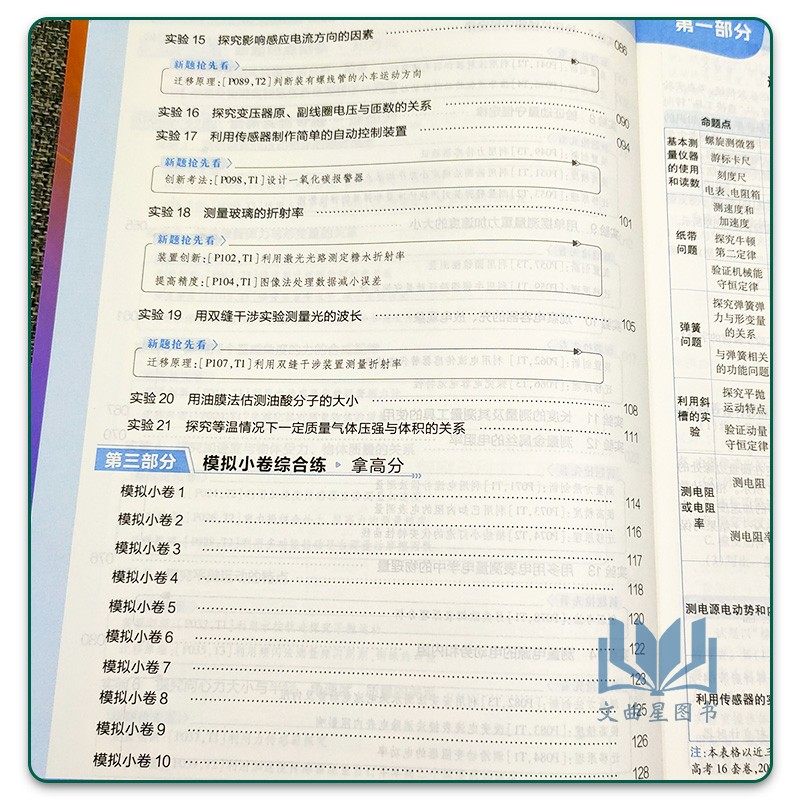 实验 15 探究影响感应电流方向的因素 086
新题抢先看
迁移原理:[P089,T2]判断装有螺线管的小车运动方向
实验 16 探究变压器原、副线圈电压与匝数的关系 090
实验 17 利用传感器制作简单的自动控制装置 094
新题抢先看
创新考法:[P098,T1]设计一氧化碳报警器
实验 18 测量玻璃的折射率 101
新题抢先看
装置创新:[P102,T1]利用激光光路测定糖水折射率
提高精度:[P104,T1]图像法处理数据减小误差
实验 19 用双缝干涉实验测量光的波长 105
新题抢先看
迁移原理:[P107,T1]利用双缝干涉装置测量折射率
实验 20 用油膜法估测油酸分子的大小 108
实验 21 探究等温情况下一定质量气体压强与体积的关系 111
第三部分 模拟小卷综合练 拿高分
模拟小卷 1 114
模拟小卷 2 116
模拟小卷 3 117
模拟小卷 4 118
模拟小卷 5 120
模拟小卷 6 122
模拟小卷 7 123
模拟小卷 8 125
模拟小卷 9 126
模拟小卷 10 128
第一部分
命题点
基本测
量仪器
的使用
和读数
螺旋测微器
游标卡尺
刻度尺
电表、电阻箱
纸带
问题
测速度和
加速度
探究牛顿
第二定律
验证机械能
守恒定律
弹簧
问题
探究弹簧弹
力与形变量
的关系
与弹簧相关
的功能问题
利用斜
槽的实
验
探究平抛
运动特点
验证动量
守恒定律
测电阻
或电阻
率
测电阻
测电阻率
测电源电动势和
利用传感器的实
注:本表格以近三
高考16套卷,20
文曲星图书